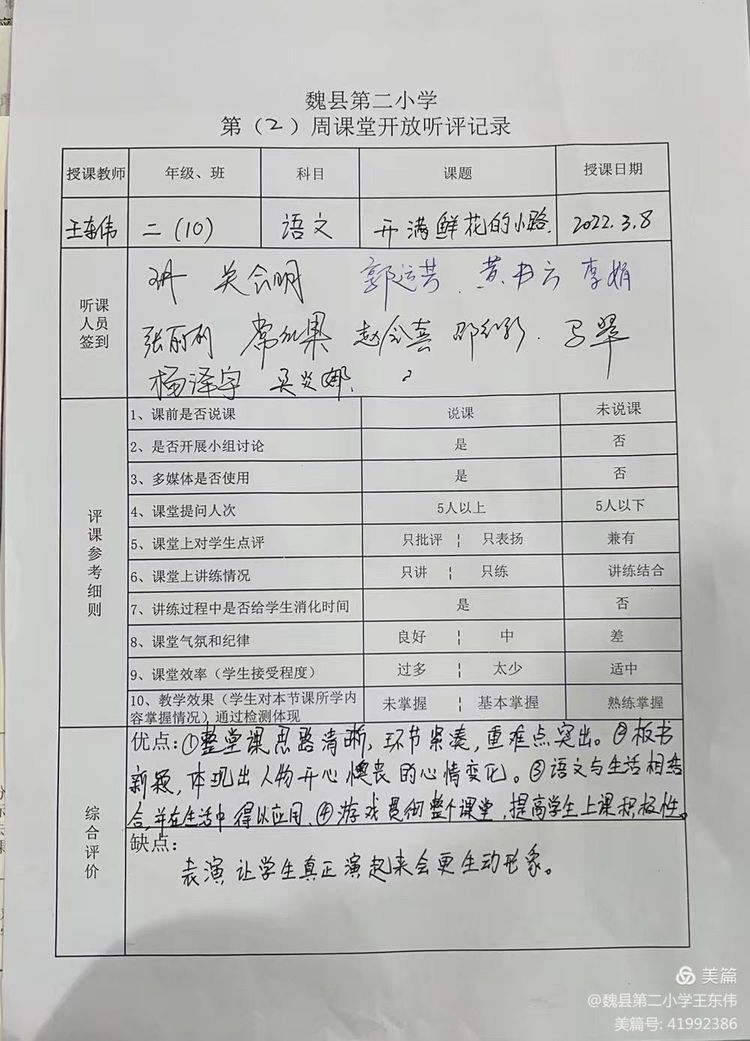 魏县第二小学
第（2）周课堂开放听评记录
授课教师 年级、班 科目 课题 授课日期
王东伟 二(10) 语文 开满鲜花的小路. 2022.3.8
听课人员签到
关会明 郭运芸 黄书云 李娟
张丽利 常红果 赵会喜 邵红彩 马翠
杨泽宇 吴炎娜.
评课参考细则
1、课前是否说课 说课 未说课
2、是否开展小组讨论 是 否
3、多媒体是否使用 是 否
4、课堂提问人次 5人以上 5人以下
5、课堂上对学生点评 只批评 ¦ 只表扬 兼有
6、课堂上讲练情况 只讲 ¦ 只练 讲练结合
7、讲练过程中是否给学生消化时间 是 否
8、课堂气氛和纪律 良好 ¦ 中 差
9、课堂效率（学生接受程度） 过多 ¦ 太少 适中
10、教学效果（学生对本节课所学内
容掌握情况）通过检测体现 未掌握 ¦ 基本掌握 熟练掌握
综合评价
优点:①整堂课思路清晰、环节紧凑，重难点突出。②板书
新颖，体现出人物开心懊丧的心情变化。③语文与生活相结
合,并在生活中得以应用.④游戏贯彻整个课堂，提高学生上课积极性。
缺点:
表演让学生真正演起来会更生动形象。
美篇
@魏县第二小学王东伟
美篇号: 41992386